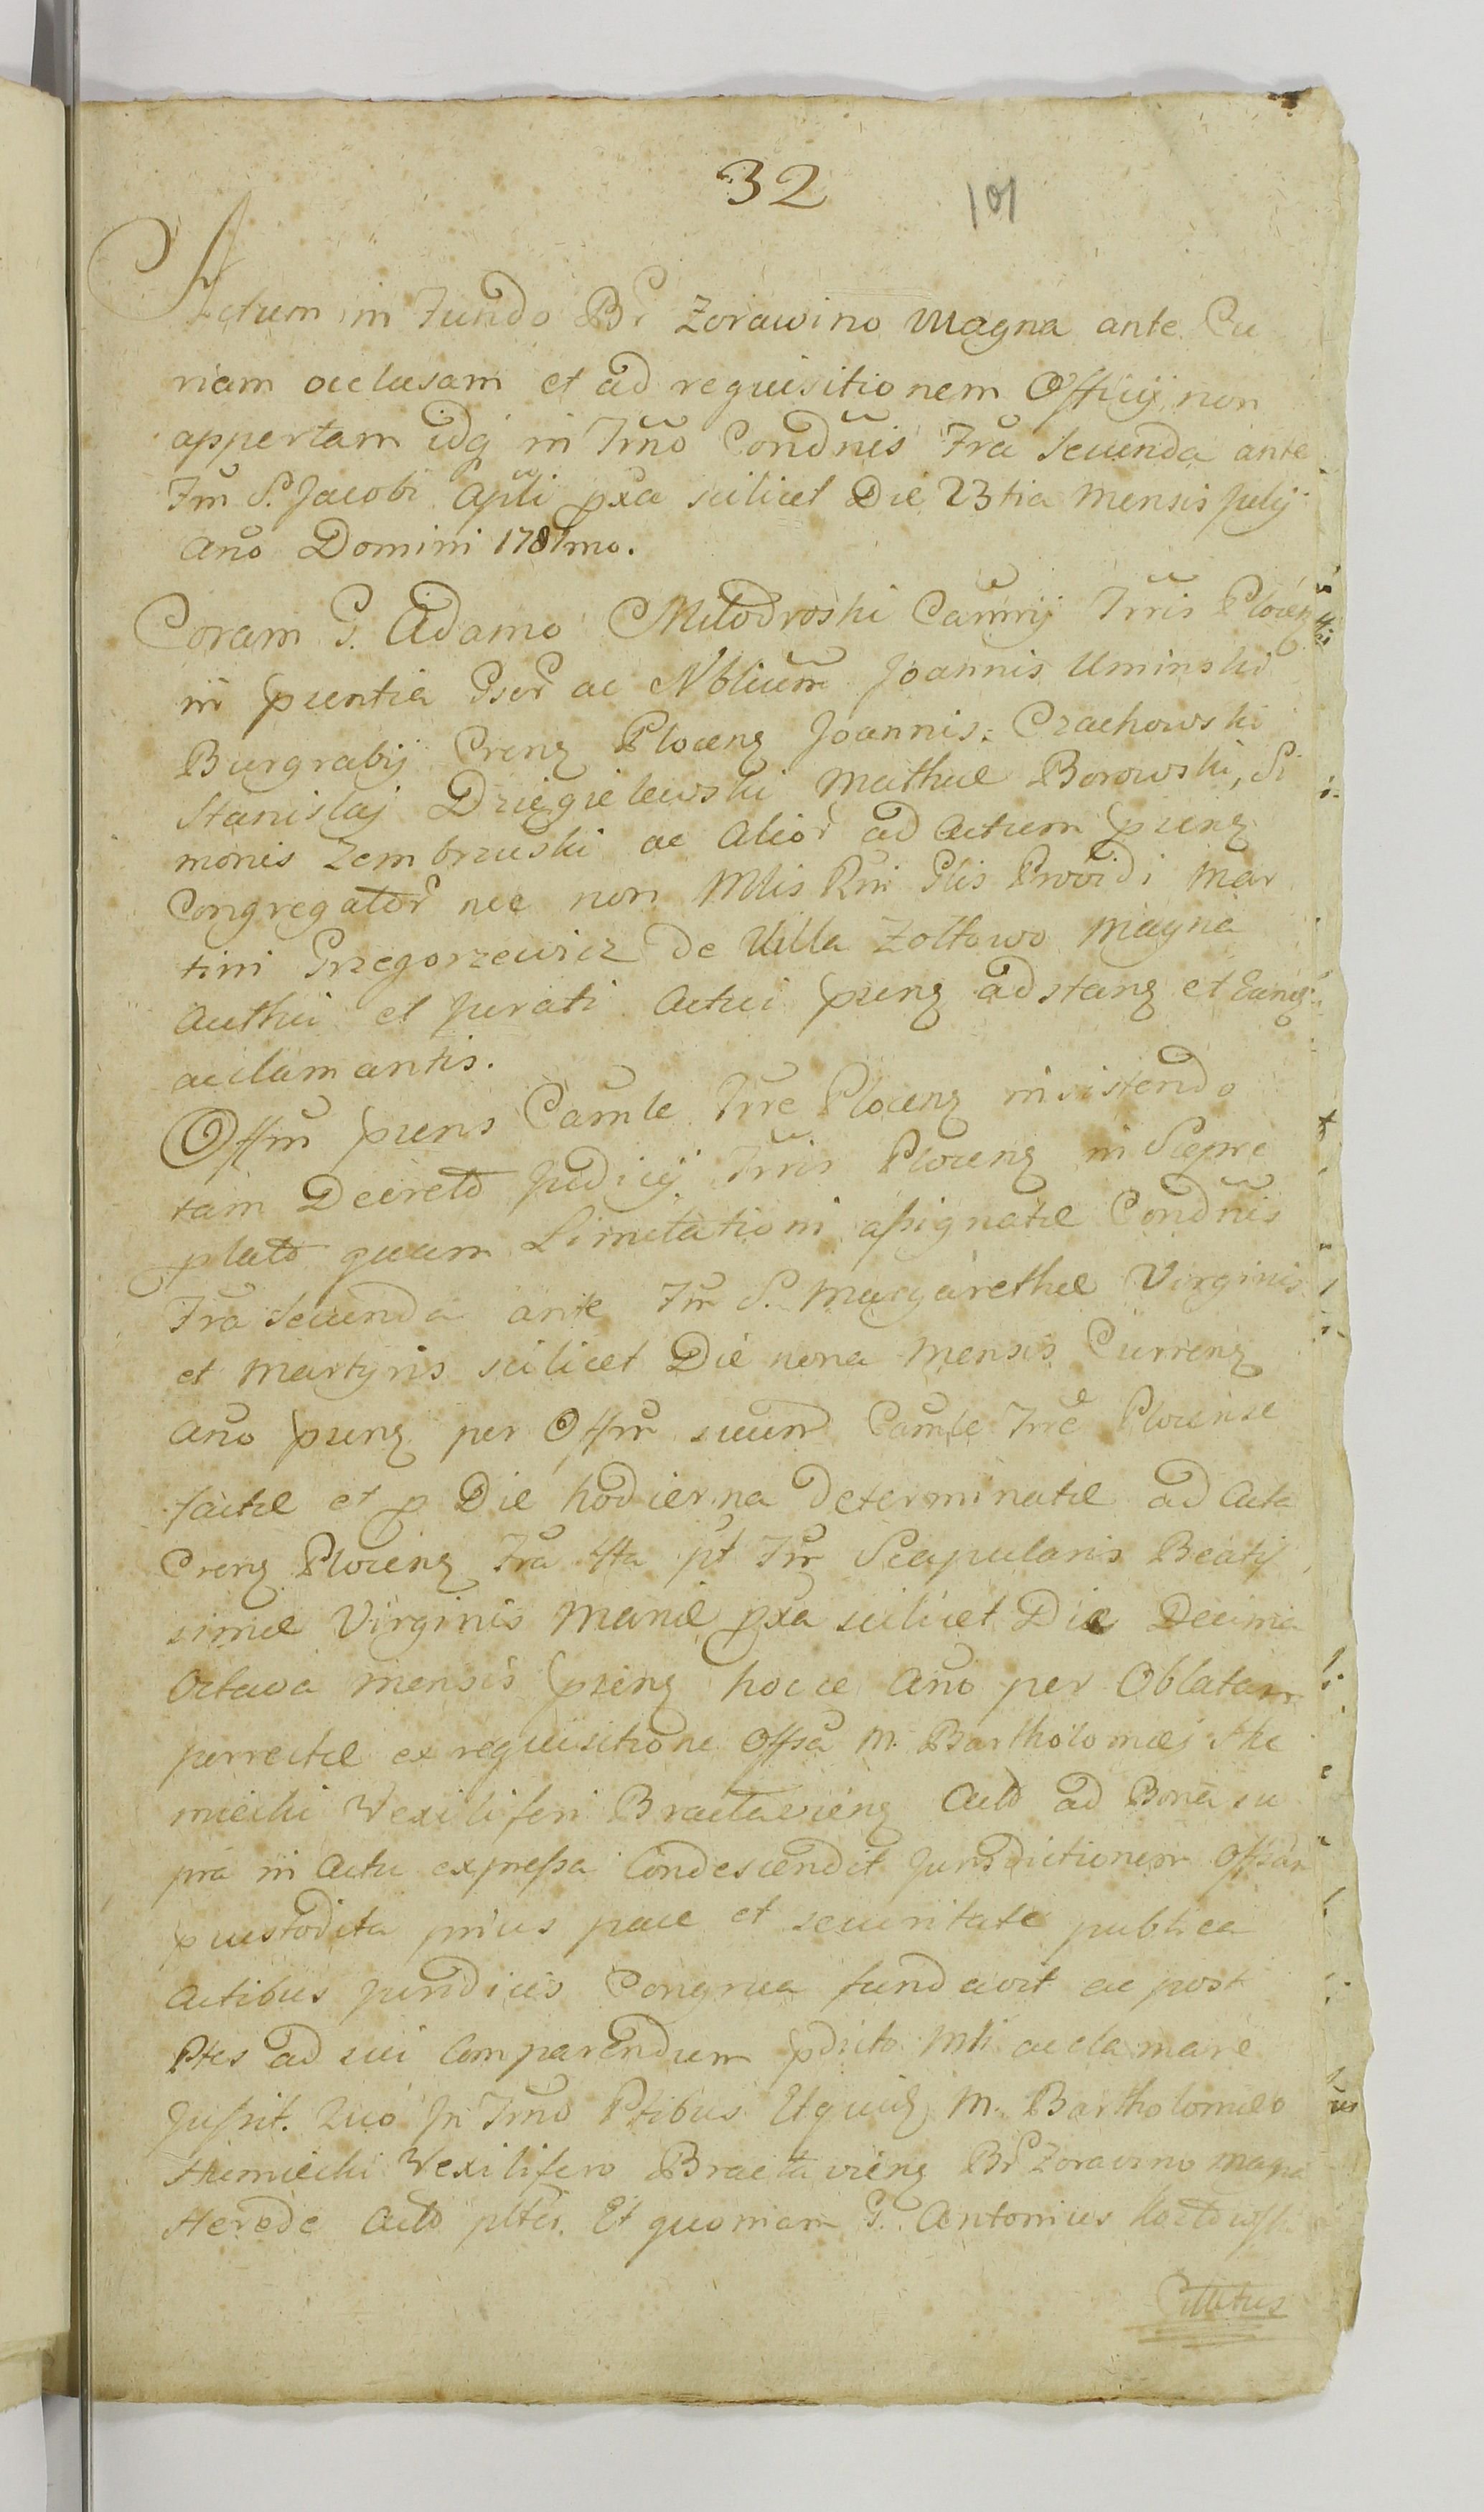 32
101
Actum in Fundo Br Zorawino Magna ante Cu
riam occlusam et ad requisitionem Officij non
appertam idq in Trno Condnis Fra Secunda ante
Fm S. Jacobi Apli pxa scilicet Die 23tia Mensis Julij
Ano Domini 1781mo.
Coram G. Adamo Młodroski Camrij Trris Plocen
in pntia Gser ac Nblium Joannis Uminski
Burgrabij Crenz Plocenz Joannis Czachowski
Stanislaj Dzięgielewski Mathæ Borowski, Si
monis Zembrzuski ac Alior ad Actum pnenz
Congregator nec non Mlis Rni Glis Providi Mar
tini Grzegorzewicz de Villa Zołtowo Magna
Authei et Jurati Actui pnenz adstanz et
acclamantis.
Offm pnens Camle Trre Plocenz insistendo
tam Decreto Judicij Trris Plocenz in Scepre
plato quam Limitationi assignatæ Condnis
Fra Secunda ante Fm S. Margarethæ Virginis
et Martyris scilicet Die nona Mensis Currenz
Ano pnenz per Offm suum Camle Trre Plocense
factæ et p Die hodierna determinatæ ad Acta
Crenz Plocenz Fra 4ta pt Fm Scapularis Beatis
simæ Virginis Mariæ pxa scilicet Die Decima
Octava mensis pnenz hocce Ano per Oblatam
porrectæ ex requisitione Offsa M. Bartholomæi
Vexiliferi Braclavienz Acto ad Bona su
pra in Actu expressa Condescendit Jurisdictionem Offsam
pcustodita prius pace et securitate publica
Actibus Juridicis Congrua fundavit ac post
Ptes ad sui Comparendum pdicto Mli acclamare
Jussit. Quo in Trno Ptibus Utquid M. Bartholomæo
Vexilifero Braclavienz Br Zoravino magna
Herede Acto pltes. Et quoniam G. Antonius